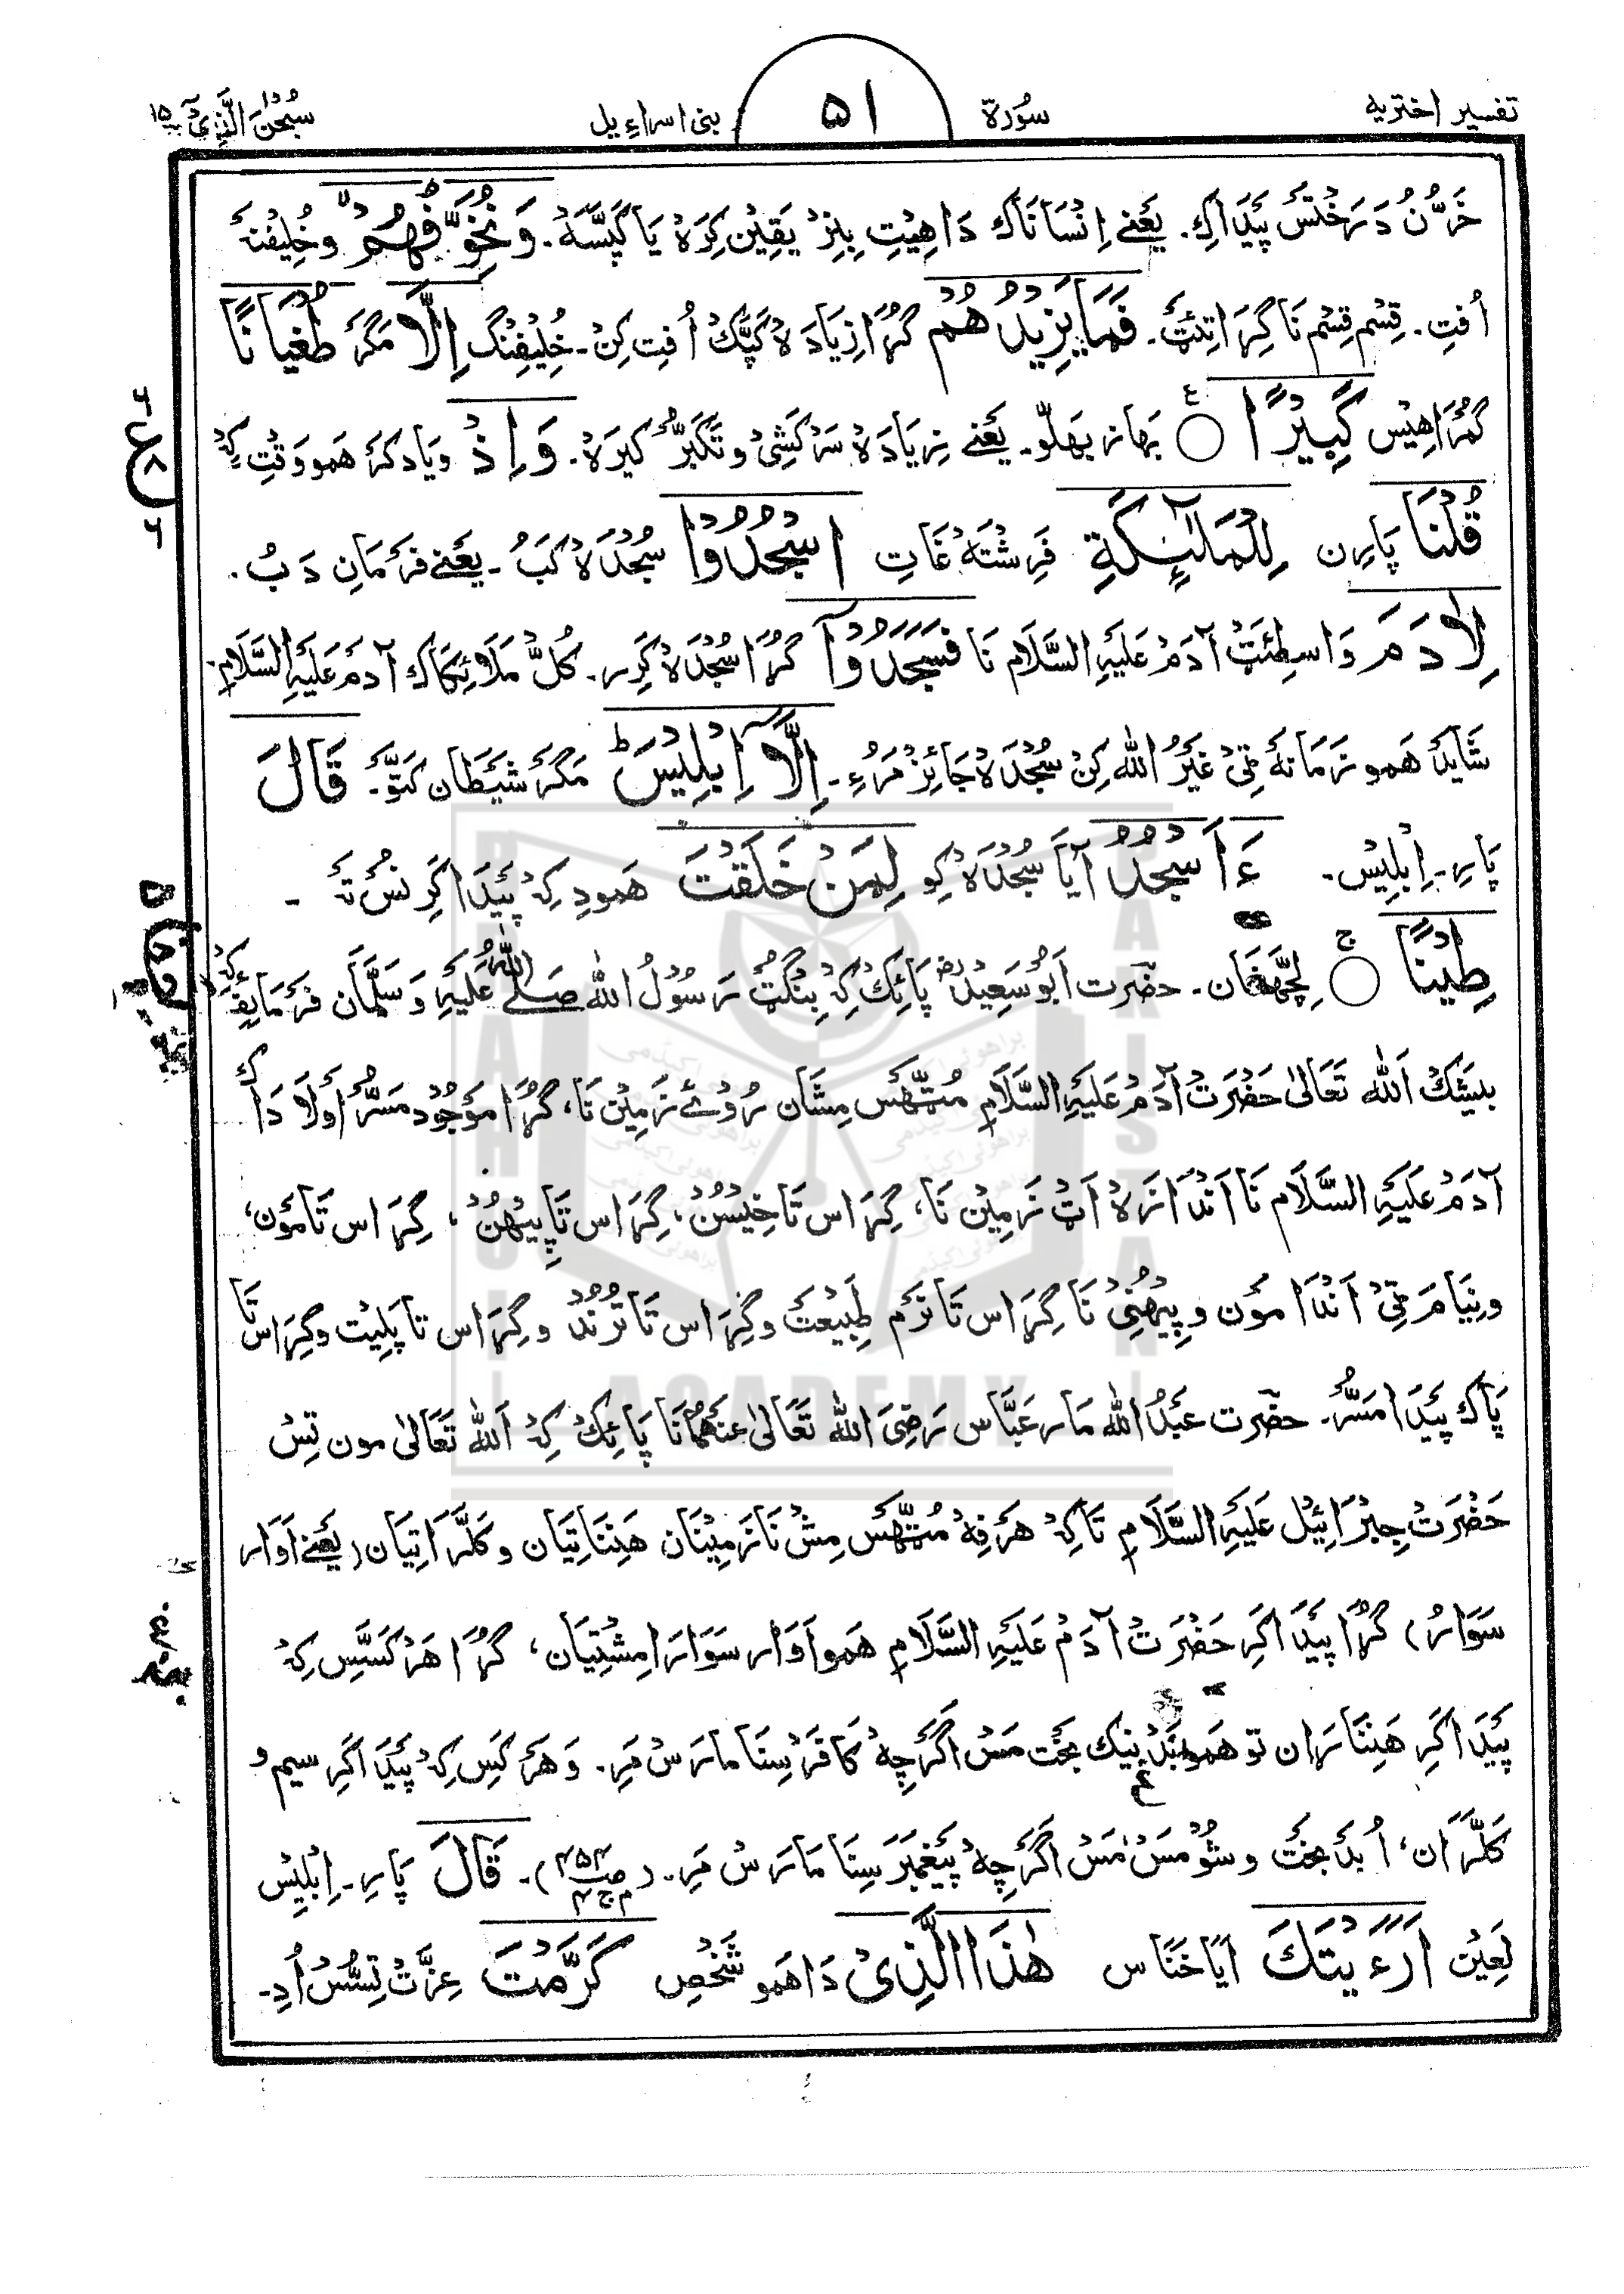 تفسیر اختریه
سُورة
۵۱
بنی اسراءیل
سُبْحٰنَ الَّذِیْٓ ۱۵
خَرُّن دَرَخْتَس پَیْدَا کِ. یَعْنے اِنْسَانَاک دَاهِیْتِ بِنِزْ یَقِیْن کِرَهْ یَا کَپَّسَهْ. وَنُخَوِّفُهُمْ وخُلِیْفِنَهْ
اُفتِ. قِسْم قِسْم نَا گِرَاتِئَٹ. فَمَا یَزِیْدُهُمْ گُرَا زِیَادَهْ کَپَّکْ اُفتِ کِنْ. خُلِیْفِنْگ اِلَّا مَگَر طُغْیَانًا
گُمْرَاهِیْس کَبِیْرًا ○ بَهاز بَهلّو. یَعْنے زِیَادَهْ سَرْکَشِیْ و تَکَبُّر کیرَهْ. وَاِذْ و یَاد کَر هَمو وَقْتِ کِهْ
قُلْنَا پَارِن لِلْمَلٰٓئِکَةِ فَرِشْتَهْ غَاتِ اسْجُدُوْا سُجْدَهْ کَبُ ۔ یَعْنے فَرْمَانِ دَبُ.
لِاٰدَمَ وَاسِطِئَٹ آدَمْ عَلَیْهِ السَّلَام نَا فَسَجَدُوْٓا گُرَا سُجْدَهْ کَرِر. کُلّ مَلَائِکَاک آدَمْ عَلَیْهِ السَّلَامِ.
شَایَد هَمو زَمَانَهْ ٹِیْ غَیْرُ اللّٰه کِنْ سُجْدَهْ جَائِزْ مَرَءِ. اِلَّآ اِبْلِیْسَ ط مَگَر شَیْطَان کَتَوّ. قَالَ
پَارِ. اِبْلِیْس. ءَاَسْجُدُ آیَا سُجْدَهْ کِوْ لِمَنْ خَلَقْتَ هَمودِ کِهْ پَیْدَا کَرِنُس تَهْ ۔
طِیْنًا ○ ج لِچَّهغَان. حضرت اَبُوْ سَعِیْد پَائِکْ کِهْ بِنْگُٹ رَسُوْلُ اللّٰه صَلَّے اللّٰهُ عَلَیْهِ وَسَلَّمَان فَرْمَایِفِ کِهْ
بیشَکْ اَللّٰه تَعَالٰی حَضْرَتْ آدَمْ عَلَیْهِ السَّلَامِ مُٹّهَس مِشَّان رُوْئے زَمِیْن نَا، گُرَا مَوْجُوْد مَسُّر اَوْلَادَاک
آدَمْ عَلَیْهِ السَّلَام نَا اَنْدَازَهْ اَٹ زَمِیْن نَا، گِرَاس تَا خِیْسُن، گِرَاس تَا پِیْهُن، گِرَاس تَا مَوُن،
و نِیَامَ ٹِیْ اَنْدَا مَوُن و پِیْهُنِیْ نَا گِرَاس تَا نَرْم طَبِیْعَت و گِرَاس تَا تُرُنْد و گِرَاس تَا پَلِیْت و گِرَاس تَا
پَاک پَیْدَا مَسُّر. حضرت عَبْدُ اللّٰه مَار عَبَّاس رَضِیَ اللّٰه تَعَالٰی عَنْهُمَانَا پَائِکْ کِهْ اَللّٰه تَعَالٰی مون تِس
حَضْرَتْ جِبْرَائِیْل عَلَیْهِ السَّلَامِ تَا کِهْ هَرْفِهْ مُٹّهَس مِشْ نَا زَمِیْنَان هَنِنَاتِیَان و کَلَّرَاتِیَان (یَعْنے اَوَار
سَوَارُ) گُرَا پَیْدَا کَرِ حَضْرَتْ آدَمْ عَلَیْهِ السَّلَامِ هَمو اَوَار سَوَارَا مِشْتِیَان، گُرَا هَر کَسَّس کِهْ
پَیْدَا کَرِ هَنِنَّارَان تو هَمو بَنْد نیک بَخْت مَسْ اَگَرْچِهْ کَافَر سِنَا مارَسْ مَرِ. وَ هَر کَس کِهْ پَیْدَا کَرِ سیم و
کَلَّرَان، اُ بَدْ بَخْت و شُوْمَسْ مَسْ اَگَرْچِهْ پَیْغَمْبَر سِنَا مَارَسْ مَرِ. (صـ۴۵۴ م ج۴). قَالَ پَارِ. اِبْلِیْس
لَعِیْن اَرَءَیْتَکَ اَیَا خَنَّاس هٰذَا الَّذِیْ دَا هَمو شَخْصِ کَرَّمْتَ عِزَّتْ تِسُّسْ اُدِ.